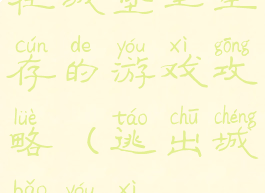 cún de yóu xì gōng
存 的 游 戏 攻
lüè táo chū chéng
略 （ 逃 出 城
bǎo yóu xì